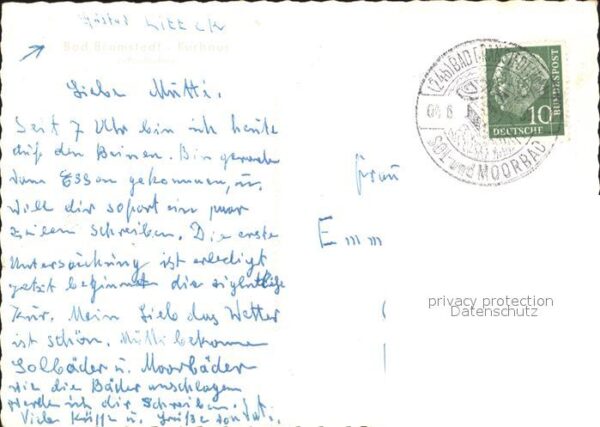 Bad Bramstedt - Kurhaus
Liebe Mutti.
Seit 7 Uhr bin ich heute
auf den Beinen. Bin gerade
vom Essen gekommen, u.
will dir sofort ein paar
zeilen schreiben. Die erste
Untersuchung ist erledigt
jetzt beginnt die eigentliche
Kur. Mein Lieb das Wetter
ist schön. Mutti bekomme
Solbäder u. Moorbäder
wie die Bäder anschlagen
werde ich dir schreiben.
Viele Küsse u. Grüße von
(24b) BAD BRAMSTEDT
SOL und MOORBAD
10
DEUTSCHE
BUNDESPOST
Frau
Emm
privacy protection
Datenschutz